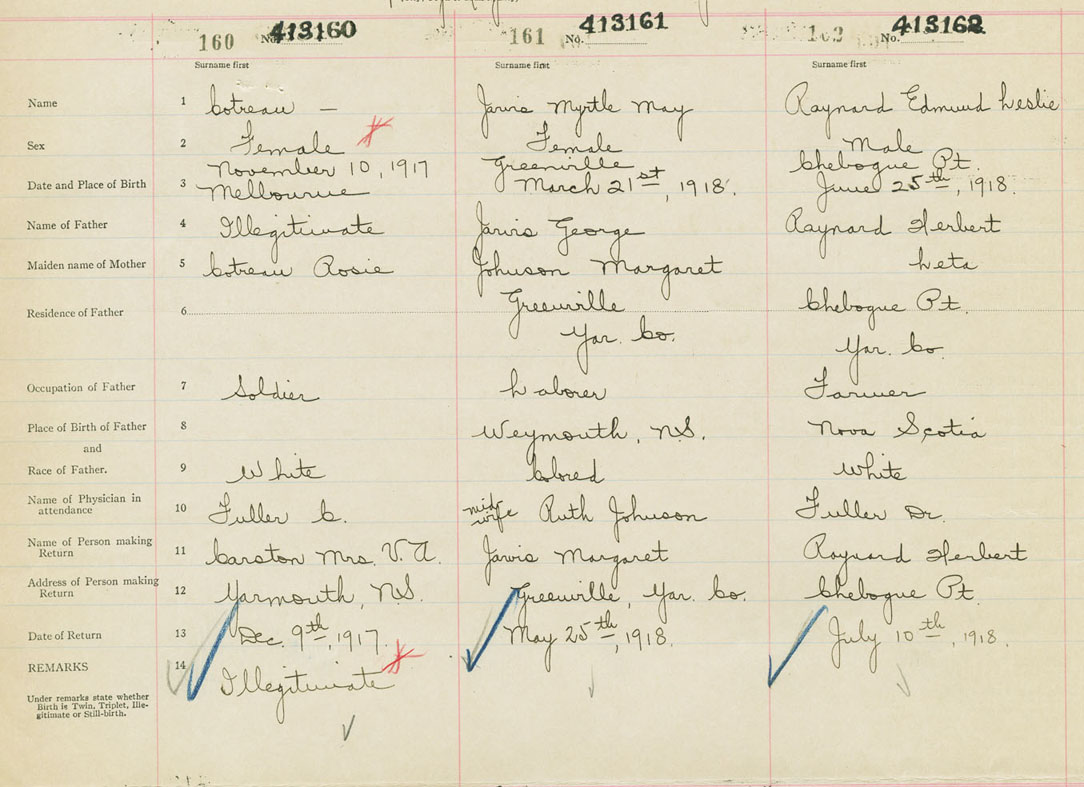 160 No. 413160
161 No. 413161
162 No. 413162
Surname first Surname first Surname first
Name 1 Cotreau — Jarvis Myrtle May Raynard Edmund Leslie
Sex 2 Female Female Male
Date and Place of Birth 3 November 10, 1917 Melbourne
Greenville March 21st, 1918.
Chebogue Pt. June 25th, 1918.
Name of Father 4 Illegitimate Jarvis George Raynard Herbert
Maiden name of Mother 5 Cotreau Rosie Johnson Margaret Leta
Residence of Father 6 Greenville Chebogue Pt.
Yar. Co. Yar. Co.
Occupation of Father 7 Soldier Laborer Farmer
Place of Birth of Father 8 Weymouth, N.S. Nova Scotia
and
Race of Father. 9 White Colored White
Name of Physician in attendance 10 Fuller C. midwife Ruth Johnson Fuller Dr.
Name of Person making Return 11 Carston Mrs. V. A. Jarvis Margaret Raynard Herbert
Address of Person making Return 12 Yarmouth, N.S. Greenville, Yar. Co. Chebogue Pt.
Date of Return 13 Dec. 9th, 1917. May 25th, 1918. July 10th, 1918.
REMARKS 14 Illegitimate
Under remarks state whether
Birth is Twin, Triplet, Ille-
gitimate or Still-birth.